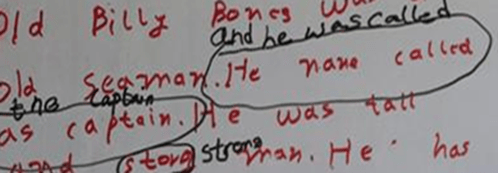 Old Billy Bones Wa
and he was called
Old Seaman. He name called
the captain
as captain. He was tall
and storg strong man. He has